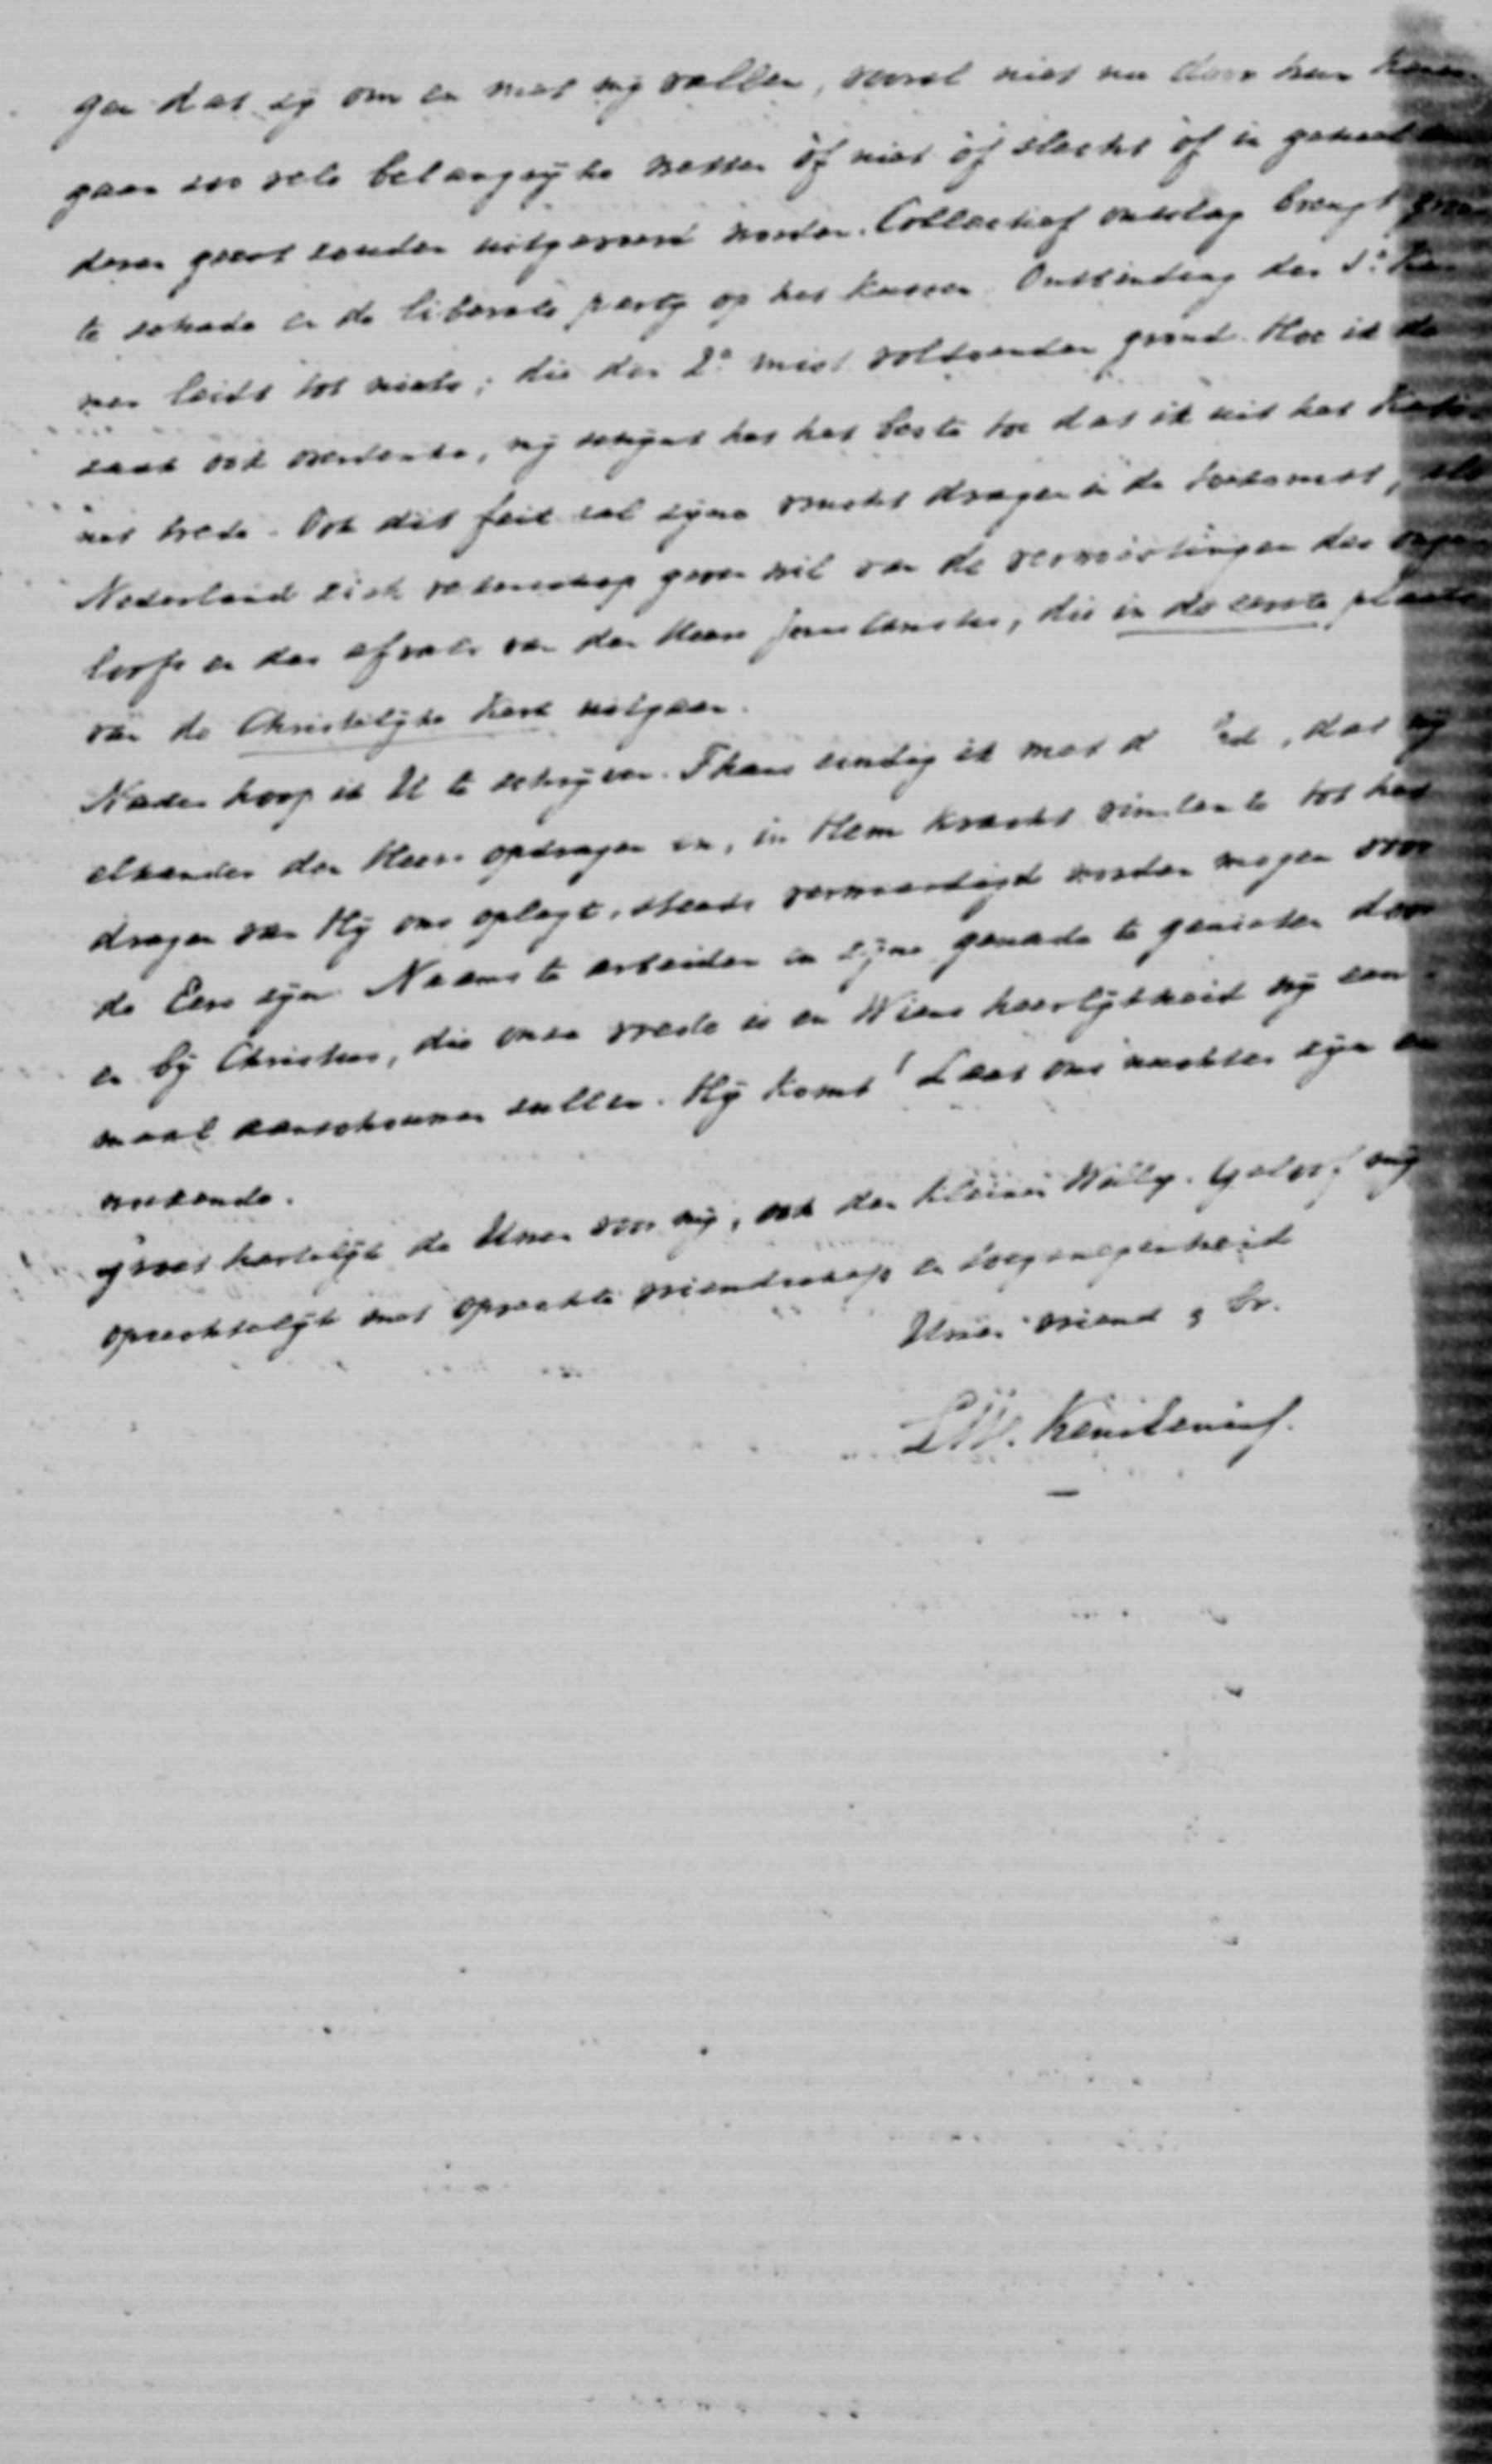 gen dat zij om en met mij vallen, vooral niet nu door hun
gaan zoo vele belangrijke wetten òf niet òf slecht òf in geheel
deren geest zouden uitgevoerd worden. Collectief ontslag brengt
te schade en de liberale partij op het kussen. Ontbinding der 1e Ka
mer leidt tot niets; die der 2e mist voldoenden grond. Hoe ik de
zaak ook overdenke, mij schijnt het het beste toe dat ik uit het Kabi
net trede. Ook dit feit zal zijne vrucht dragen in de toekomst, als
Nederland zich rekenschap geven wil van de verwoestingen des onge
loofs en des afvals van den Heere Jezus Christus, die in de eerste plaats
van de Christelijke Kerk uitgaan.
Nader hoop ik U te schrijven. Thans eindig ik met d , dat wij
elkander den Heere opdragen en, in Hem kracht vindende tot het
dragen van Hij ons oplegt, steeds verwaardigd worden mogen voor
de Eere zijns Naams te arbeiden en zijne genade te genieten door
en bij Christus, die onze vrede is en Wiens heerlijkheid wij een-
maal aanschouwen zullen. Hij komt! Laat ons nuchter zijn en
wakende.
Groet hartelijk de Uwen voor mij, ook den kleinen Willy. Geloof mij
oprechtelijk met oprechte vriendschap en toegenegenheid
Uwen vriend & br.
L.W.C. Keuchenius.